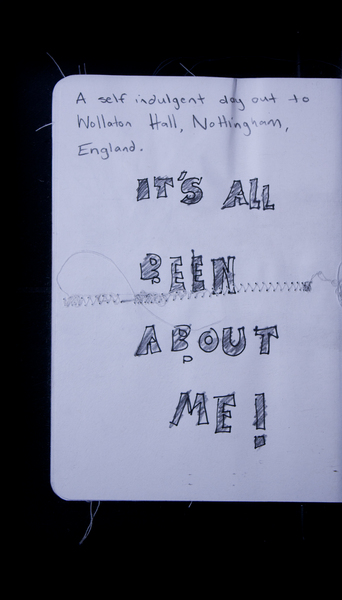 A self indulgent day out to
Wollaton Hall, Nottingham,
England.
IT'S ALL
BEEN
ABOUT
ME!